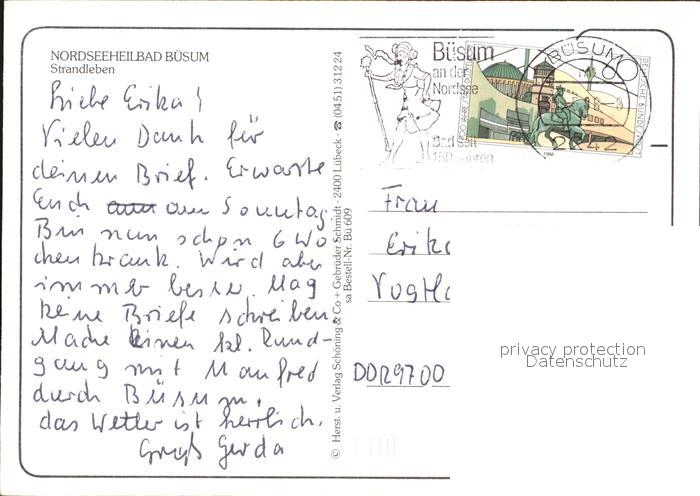 NORDSEEHEILBAD BÜSUM
Strandleben
Liebe Erika!
Vielen Dank für
deinen Brief. Erwarte
Euch am Sonntag.
Bin nun schon 6 Wo
chen krank. Wird aber
immer besser. Mag
keine Briefe schreiben
Mache einen kl. Rund-
gang mit Manfred
durch Büsum.
das Wetter ist herrlich.
Gruß Gerda
© Herst. u. Verlag Schöning & Co + Gebrüder Schmidt · 2400 Lübeck · ☎ (0451) 31224
sa Bestell-Nr. Bü 609
Büsum
an der
Nordsee
Bad seit
150 Jahren
BÜSUM
2242
60
DEUTSCHE BUNDESPOST
1988
Frau
Erika
DDR 9700
privacy protection
Datenschutz